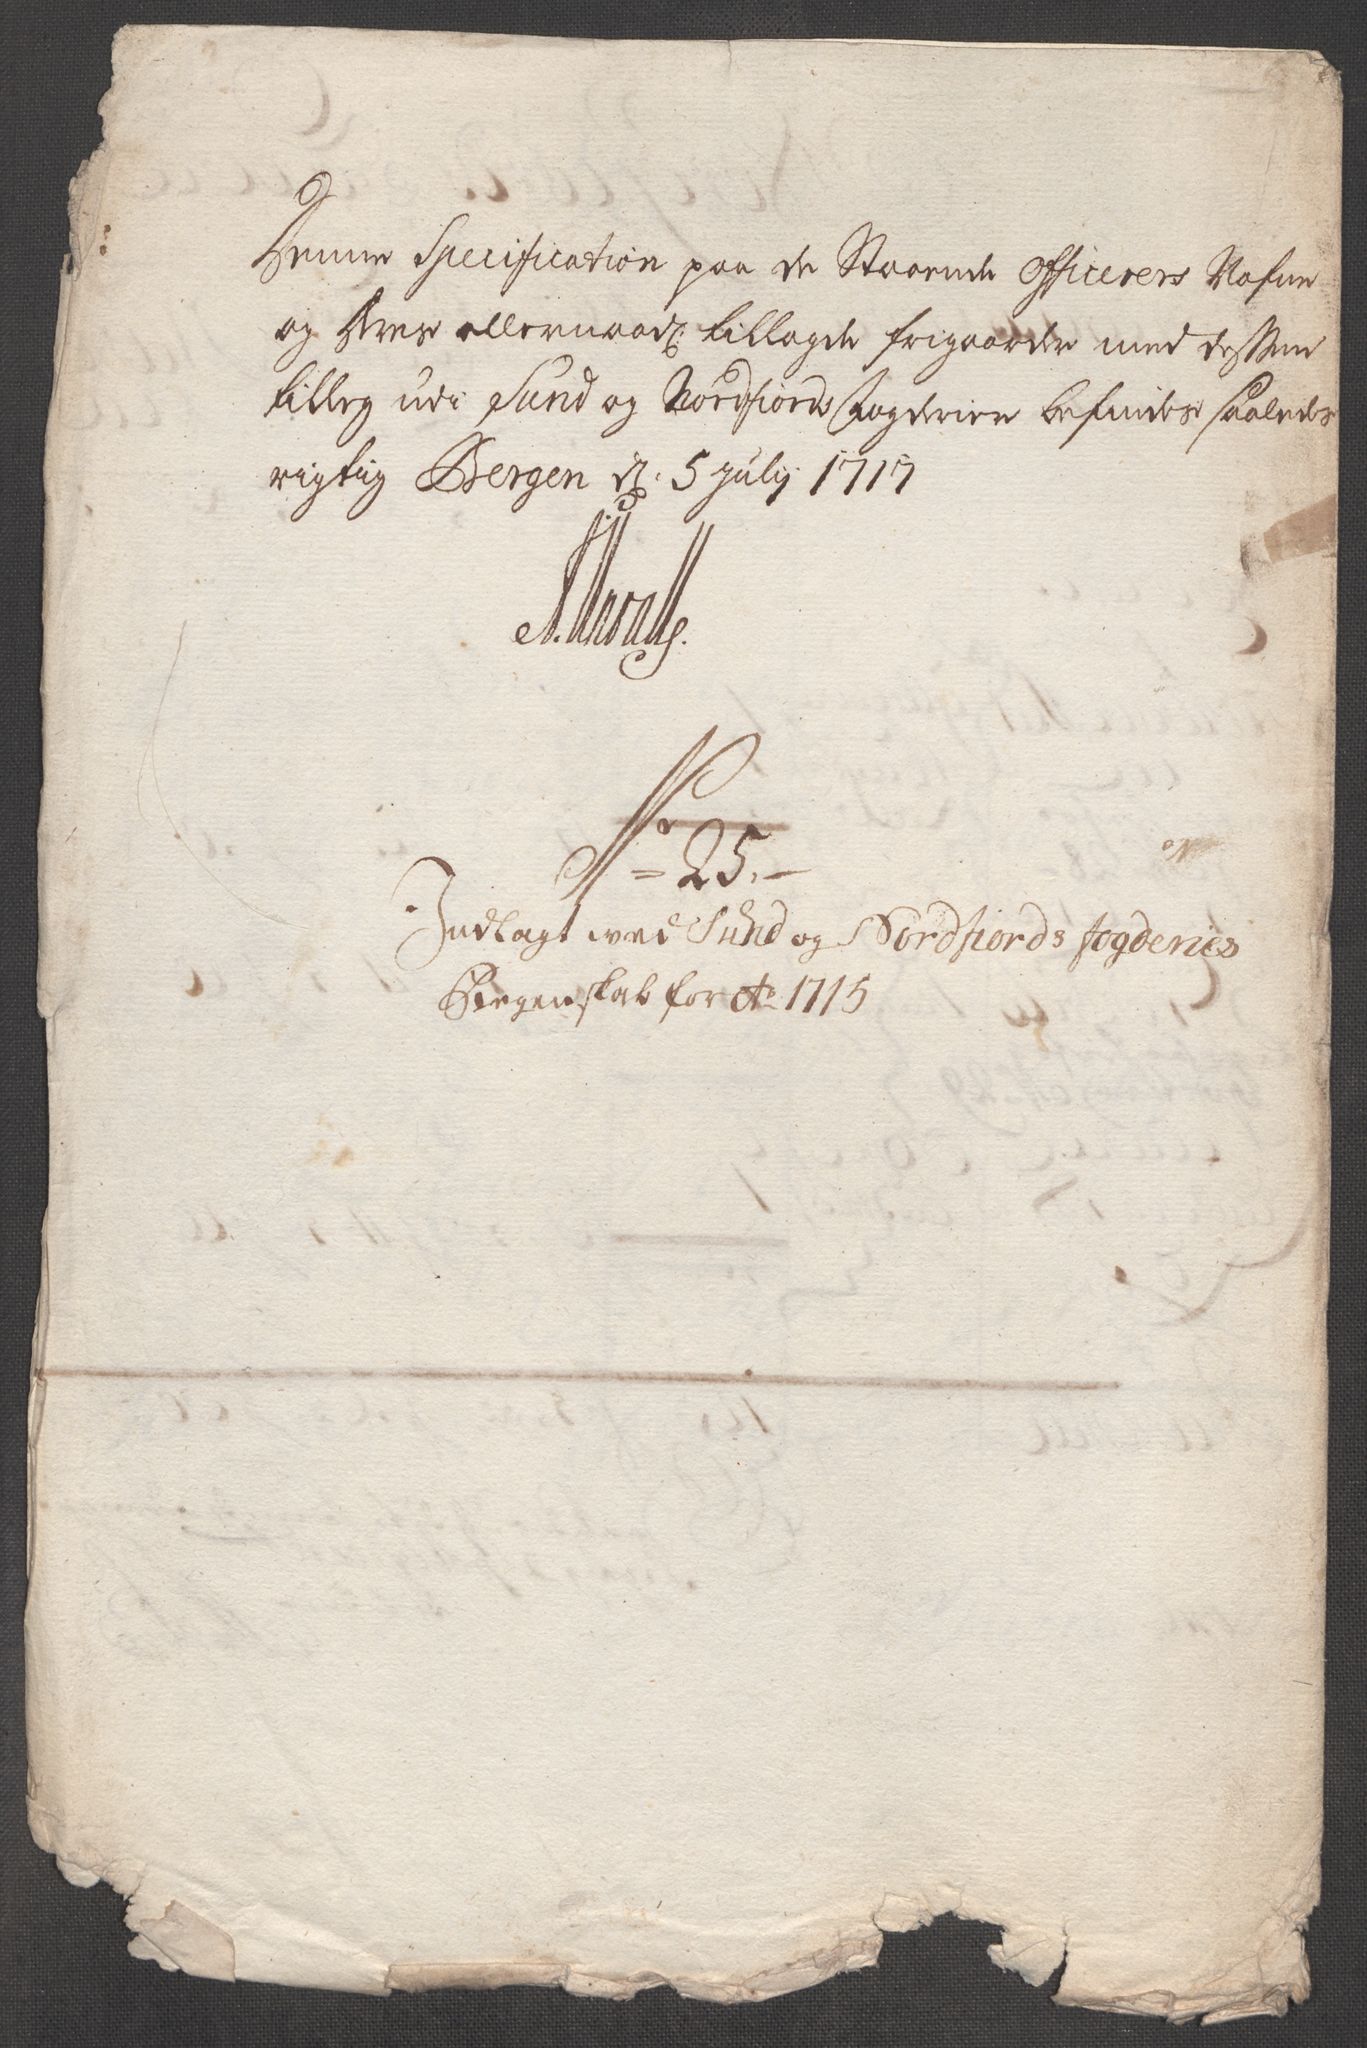 Denne Specification paa de Staaende Officerers Nafne
og Deres allernaad: tillagde frigaarder med dessen
tilleg udi Sund og Nordfiords fogderier befindes saaledes
rigtig Bergen d: 5 july 1717
No 25.
Indlagt wed Sund og Nordfiords fogderies
Regenskab for Ao 1715